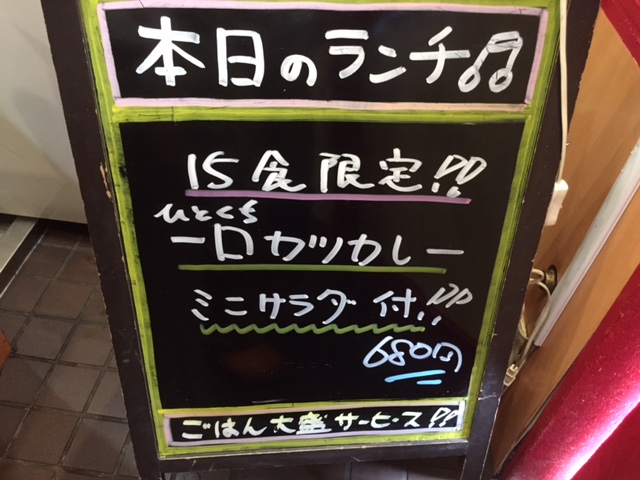 本日のランチ♫
15食限定!!
ひとくち
一口カツカレー
ミニサラダ付!!
680円
ごはん大盛サービス!!